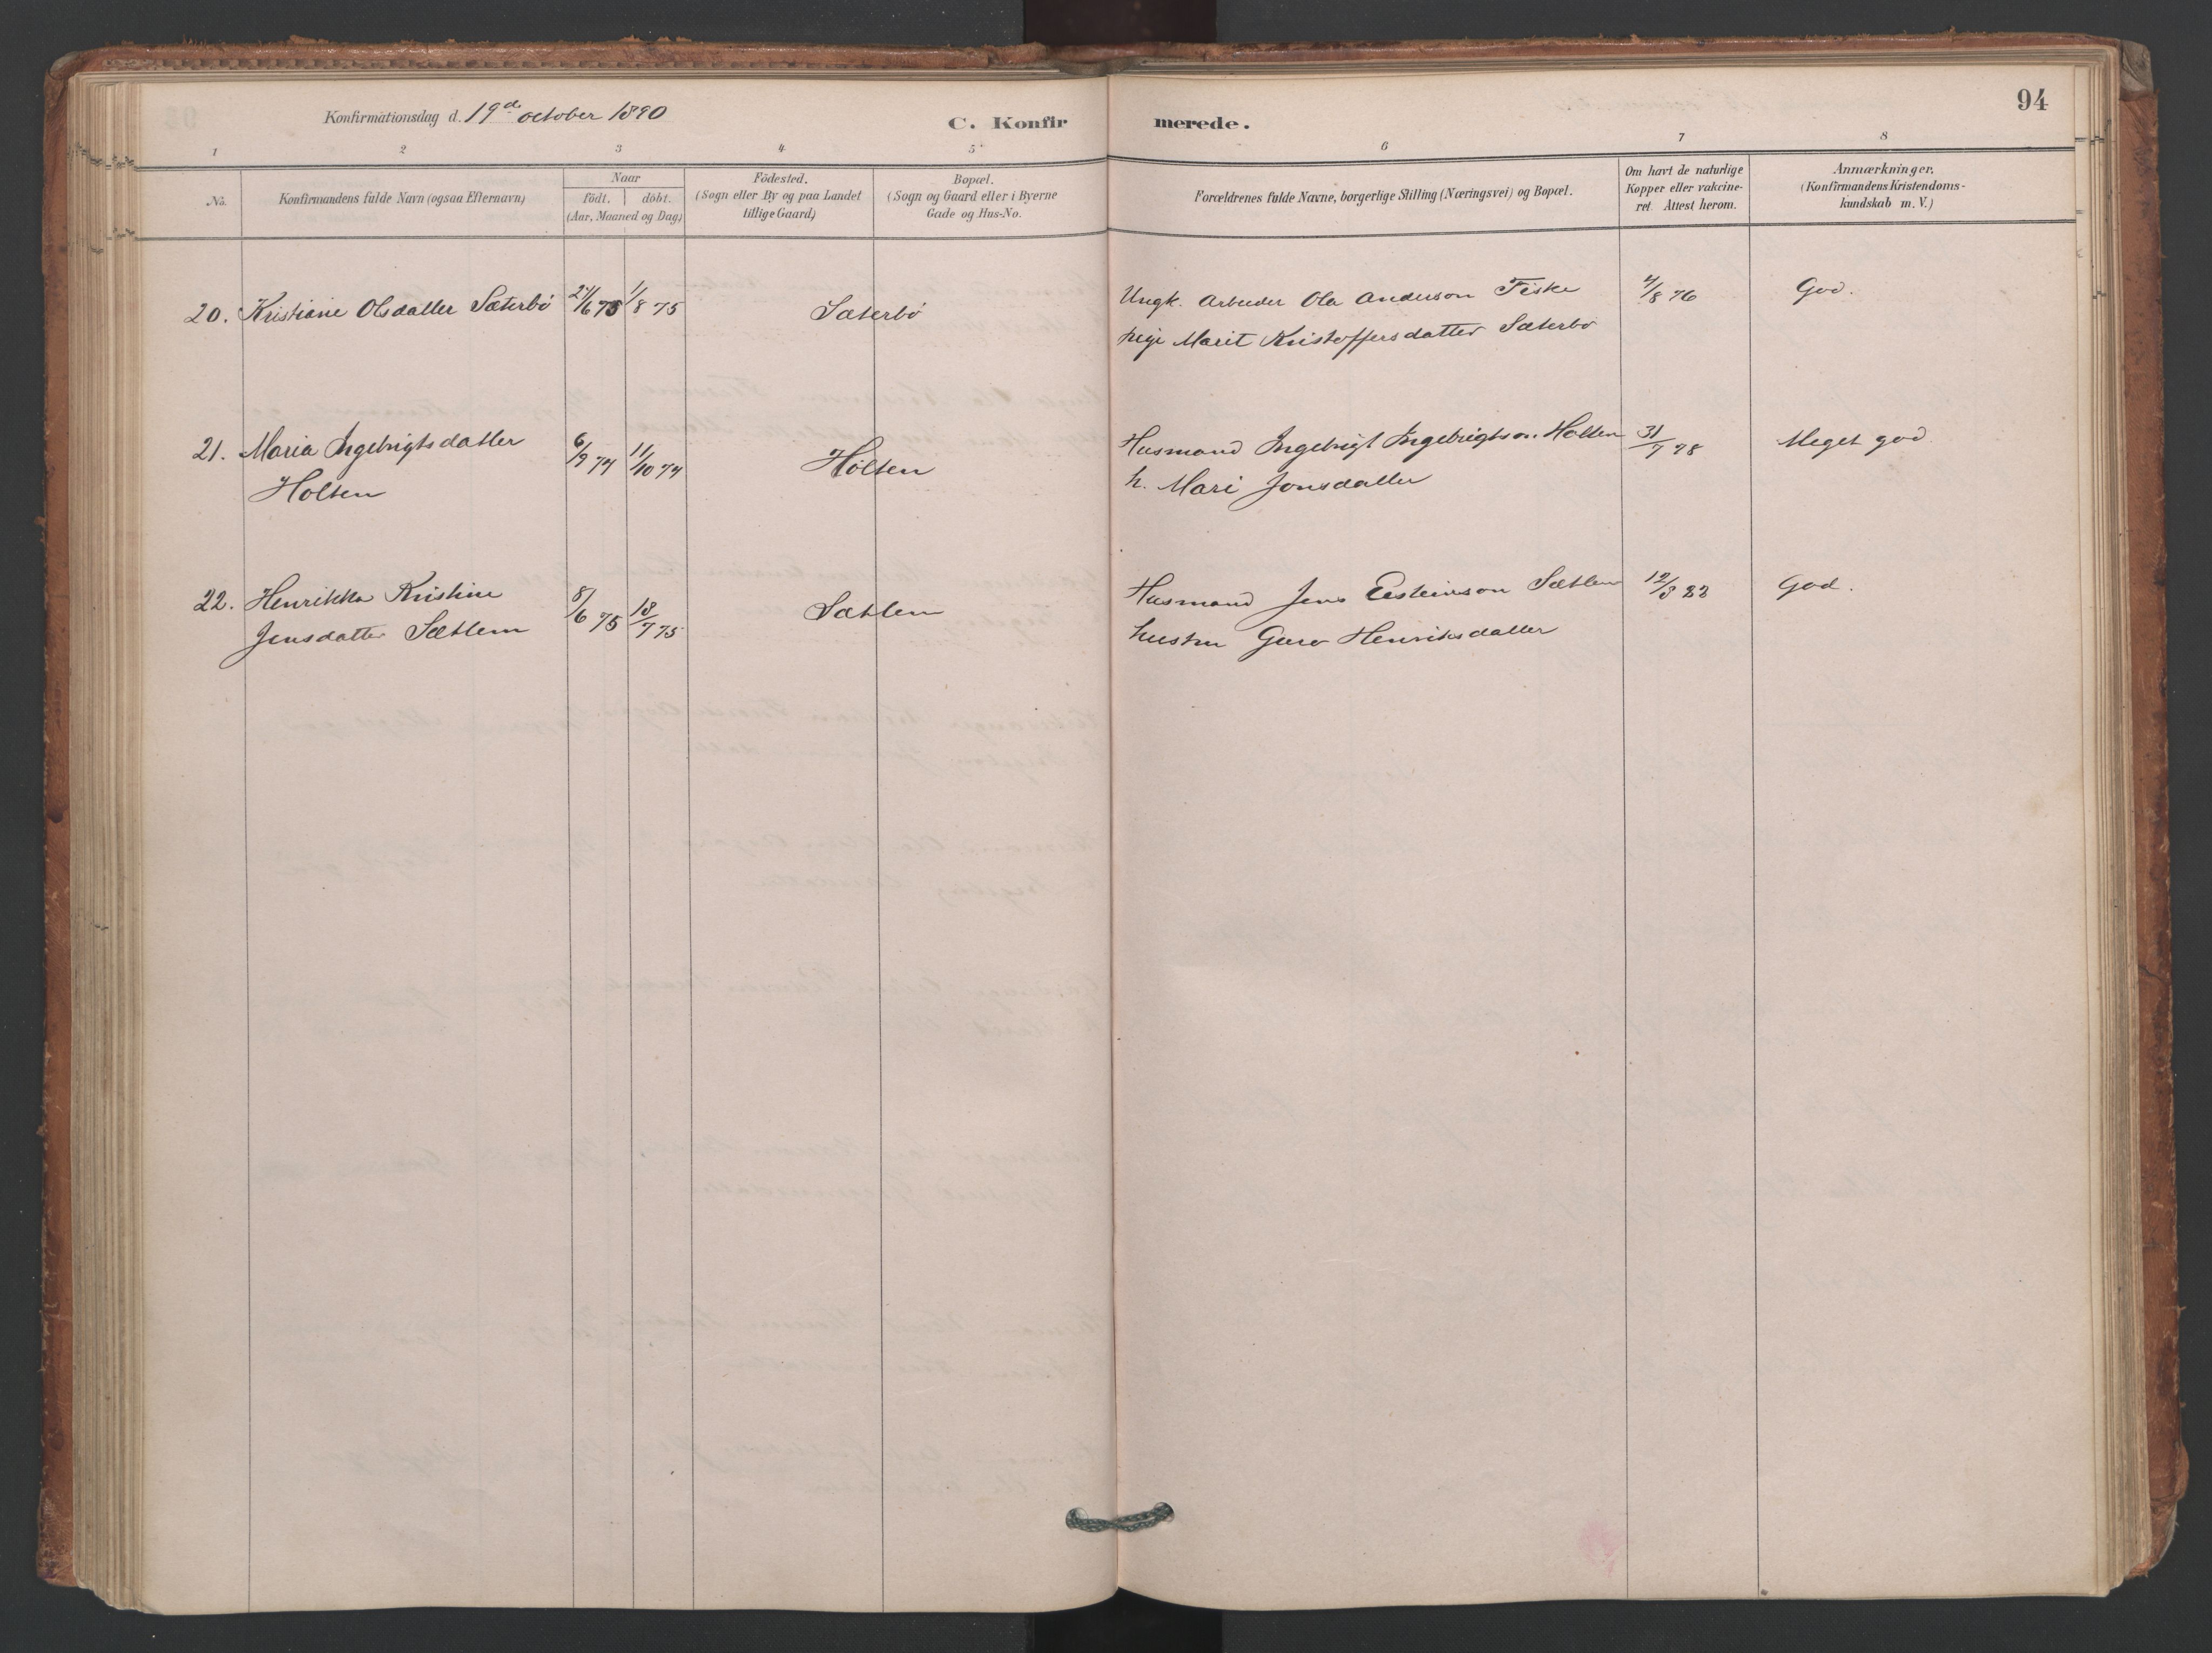 94
Konfirmationsdag d. 19de october 1890
C. Konfirmerede.
1 2 3 4 5 6 7 8
No.
Konfirmandens fulde Navn (ogsaa Efternavn)
Naar
født. døbt.
(Aar, Maaned og Dag)
Födested.
(Sogn eller By og paa Landet
tillige Gaard)
Bopæl.
(Sogn og Gaard eller i Byerne
Gade og Hus-No.
Forældrenes fulde Navne, borgerlige Stilling (Næringsvei) og Bopæl.
Om havt de naturlige
Kopper eller vakcine-
ret. Attest herom.
Anmærkninger.
(Konfirmandens Kristendoms-
kundskab m. V.)
20. Kristiane Olsdatter Sæterbö 1/8 75 Sæterbö Ungk. Arbeider Ola Anderson Fiske 4/8 76 God.
pige Marit Kristoffersdatter Sæterbö
21. Maria Ingebrigtsdatter 6/9 74 11/10 74 Holten Husmand Ingebrigt Ingebrigtson Holten 31/7 78 Meget god
Holten h. Mari Jonsdatter
22. Henrikka Kristine 8/6 75 18/7 75 Sætlem Husmand Jens Eisteinson Sætlem God.
Jensdatter Sætlem hustru Guro Henriksdatter